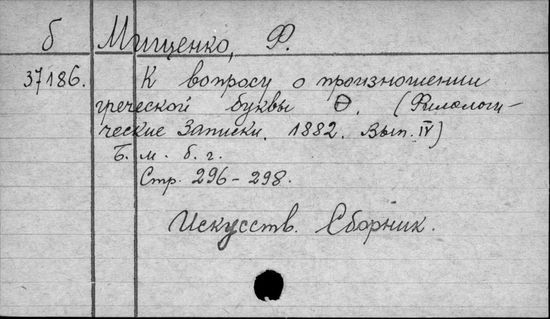 б Мищенко, Ф.
37186. К вопросу о произношении
греческой буквы Ѳ. (Филологи-
ческие Записки. 1882. Вып. IV)
Б. м. б. г.
Стр. 296-298.
Искусств. Сборник.